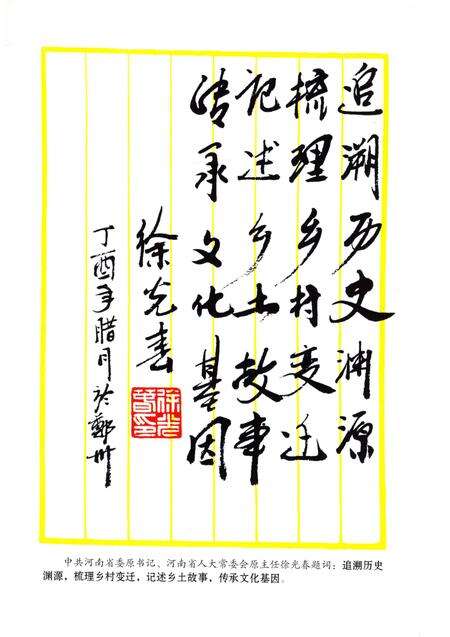 追溯历史渊源
梳理乡村变迁
记述乡土故事
传承文化基因
徐光春
丁酉年腊月於鄭州
徐光春印
中共河南省委原书记、河南省人大常委会原主任徐光春题词：追溯历史
渊源，梳理乡村变迁，记述乡土故事，传承文化基因。